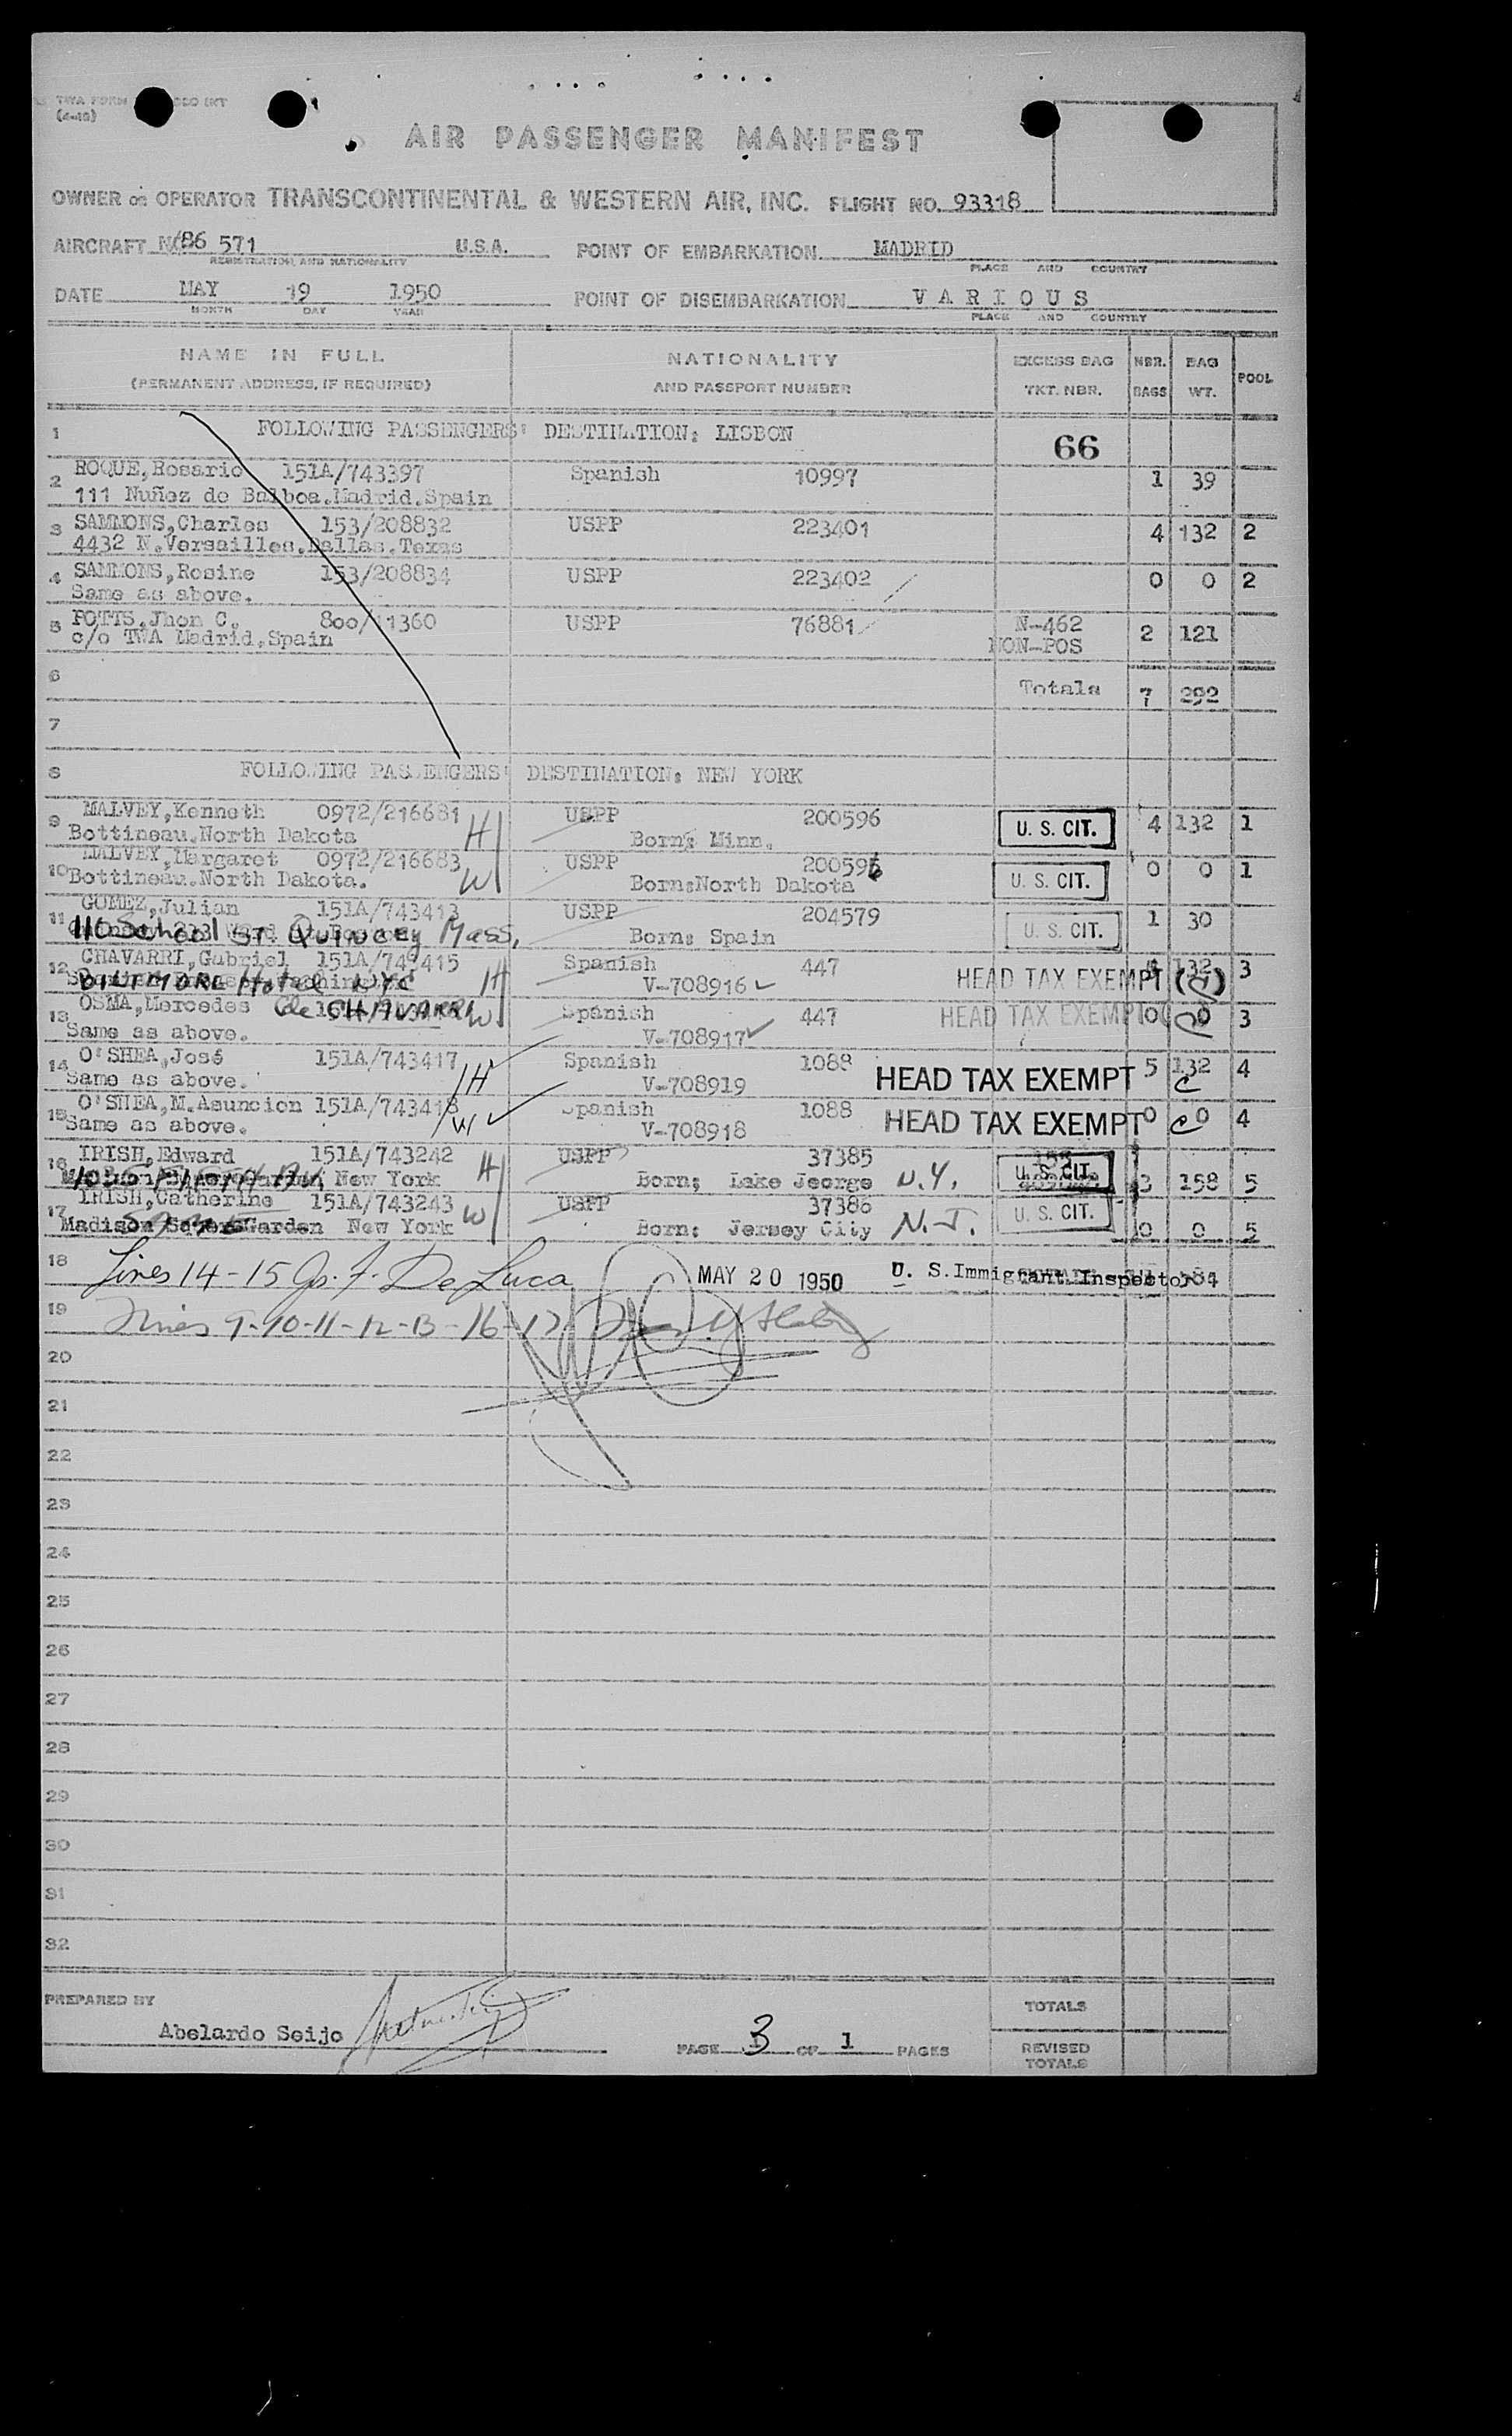 TWA FORM
(4-49)
AIR PASSENGER MANIFEST
OWNER or OPERATOR TRANSCONTINENTAL & WESTERN AIR, INC. FLIGHT NO. 93318
AIRCRAFT 86 571 U.S.A. POINT OF EMBARKATION MADRID
REGISTRATION AND NATIONALITY PLACE AND COUNTRY
DATE MAY 19 1950 POINT OF DISEMBARKATION V A R I O U S
MONTH DAY YEAR PLACE AND COUNTRY
NAME IN FULL NATIONALITY EXCESS BAG NBR. BAG POOL
(PERMANENT ADDRESS, IF REQUIRED) AND PASSPORT NUMBER TKT. NBR. BAGS WT.
1 FOLLOWING PASSENGERS' DESTINATION: LISBON 66
2 ROQUE,Rosario 151A/743397 Spanish 10997 1 39
111 Nuñez de Balboa.Madrid.Spain
3 SAMMONS,Charles 153/208832 USPP 223401 4 132 2
4432 N.Versailles.Dallas.Texas
4 SAMMONS,Rosine 153/208834 USPP 223402 0 0 2
Same as above.
5 POTTS,Jhon C. 800/11360 USPP 76881 N-462 2 121
c/o TWA Madrid.Spain NON-POS
6 Totals 7 292
7
8 FOLLOWING PASSENGERS' DESTINATION: NEW YORK
9 MALVEY,Kenneth 0972/216681 H USPP 200596 U. S. CIT. 4 132 1
Bottineau.North Dakota Born: Minn.
10 MALVEY,Margaret 0972/216683 W USPP 200596 U. S. CIT. 0 0 1
Bottineau.North Dakota. Born:North Dakota
11 GOMEZ,Julian 151A/743413 USPP 204579 U. S. CIT. 1 30
110 School St. Quincey Mass. Born: Spain
12 CHAVARRI,Gabriel 151A/743415 H Spanish 447 HEAD TAX EXEMPT 132 3
BILTMORE Hotel NYC V-708916
13 OSMA,Mercedes de CHAVARRI W Spanish 447 HEAD TAX EXEMPT 0 0 3
Same as above. V-708917
14 O'SHEA,José 151A/743417 H Spanish 1088 HEAD TAX EXEMPT 5 132 4
Same as above. V-708919 C
15 O'SHEA,M.Asuncion 151A/743418 W Spanish 1088 HEAD TAX EXEMPT 0 C 0 4
Same as above. V-708918
16 IRISH,Edward 151A/743242 H USPP 37385 U. S. CIT. 3 158 5
New York Born; Lake Jeorge N.Y.
17 IRISH,Catherine 151A/743243 W USPP 37386 U. S. CIT. 0 0 5
Madison Garden New York Born; Jersey City N.J.
18 Lines 14-15 De Luca MAY 20 1950 U. S.Immigrant Inspector
19 Lines 9-10-11-12-13-16-17
20
21
22
23
24
25
26
27
28
29
30
31
32
PREPARED BY TOTALS
Abelardo Seijo PAGE 3 OF 1 PAGES REVISED
TOTALS